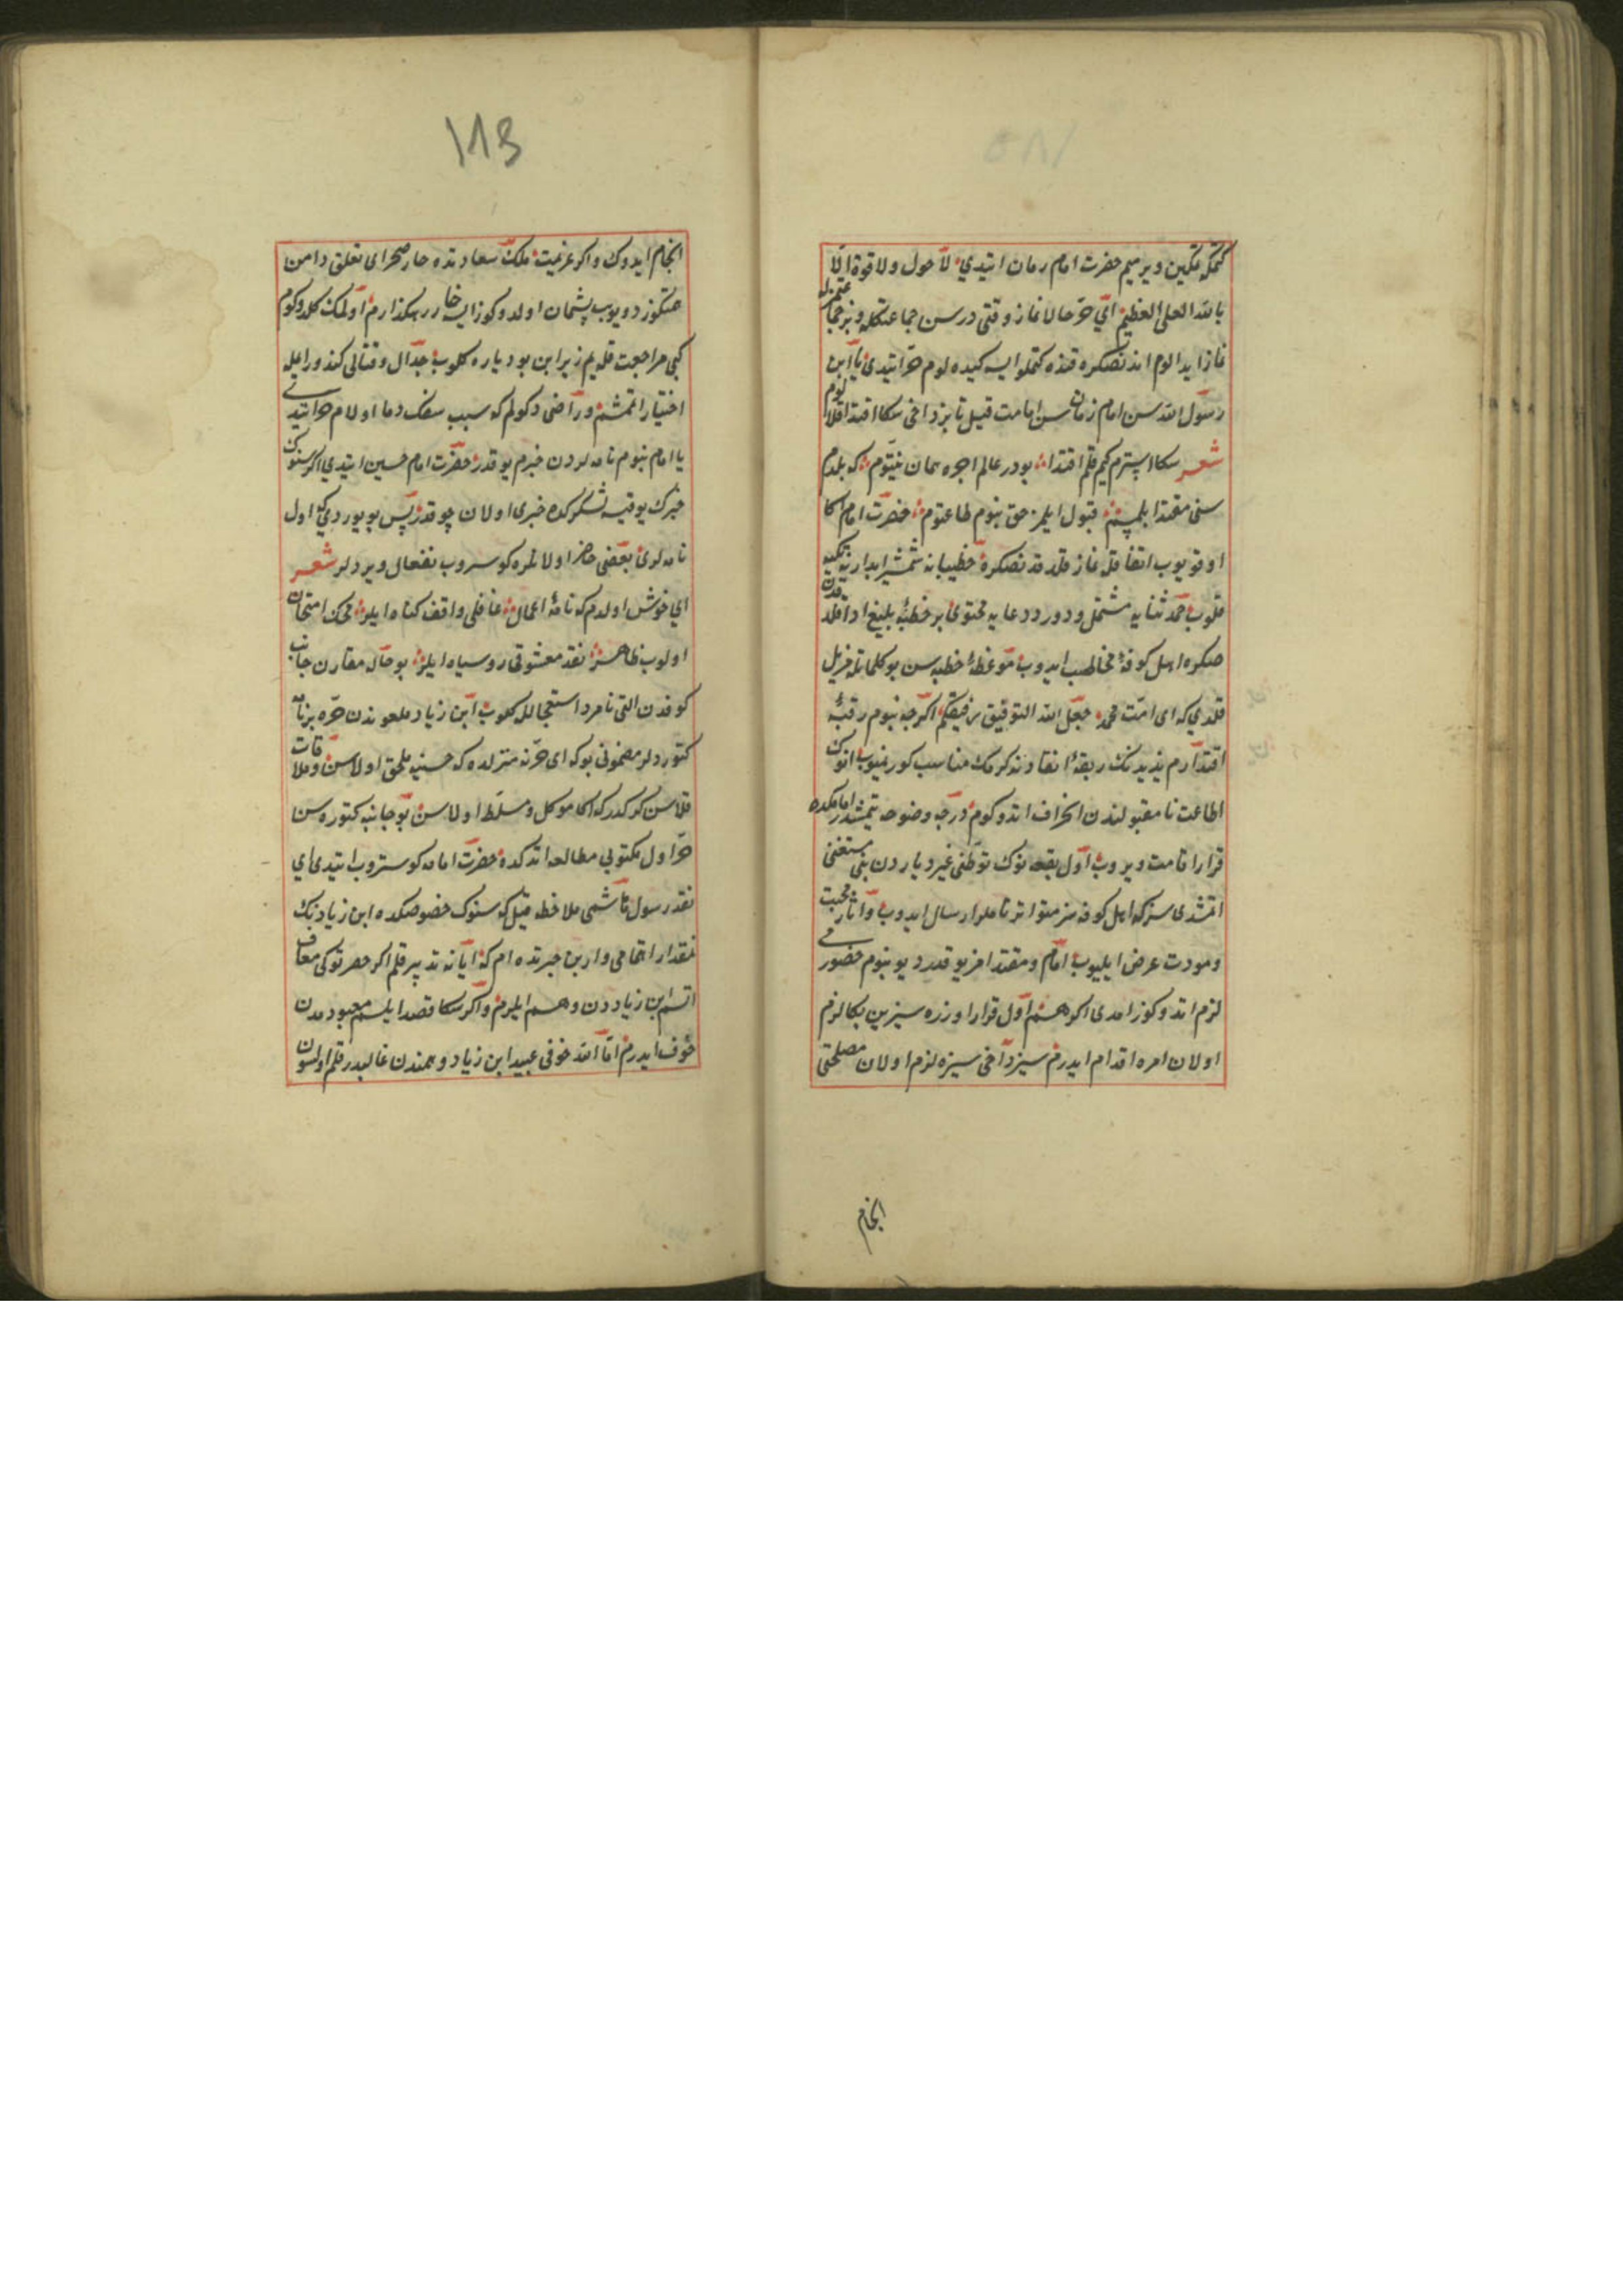 كتمكه تمكين ويرميم حضرت امام زمان ايتدي لا حول ولا قوة الا
بالله العلي العظيم اي حر حالا نماز وقتي در سن جماعتكله و بز جماعتمزله
نماز ايدالوم اندنصكره قنده كتملو ايسه كيده لوم حر ايتدي يا ابن
رسول الله سن امام زمان سن امامت قيل تا بز داخي سكا اقتدا قلالوم
شعر سكا استرم كيم قلم اقتدا بودر عالم اجره همان نيتوم كه بلدم
سني مقتدا بلمين قبول ايلمز حق بنوم طاعتوم حضرت امام اكا
اوقويوب اتفاقله نماز قلدقدنصكره خطيبانه شمشير ابدارينه تكيه
قلوب حمد ثنايه مشتمل ودرود دعايه محتوي بر خطبه بليغ ادا قلدقدن
صكره اهل كوفه مخاطب ايدوب موعظه خطبه سن بو كلماتله تذييل
قلدي كه اي امت محمد جعل الله التوفيق رفيقكم اكرچه بنوم رقبه
اقتدارم يزيدنك ربقه انقادندكرمك مناسب كورنميوب انوك
اطاعت نامقبولندن انحراف اتدوكوم درجه وضوحه يتمشدر امامكده
قرار اقامت ويروب اول بقعه نوك توطني غير ديار دن بني مستغني
اتمشدي سز كه اهل كوفه سز متواتر نامه لر ارسال ايدوب واثار محبت
ومودت عرض ايليوب امام ومقتدامز يوقدر ديو بنوم حضورمي
لازم اتدوكوز امدي اكر همان اول قرار اوزره سيز بن بكا لازم
اولان امره اقدام ايدرم سيز داخي سيزه لازم اولان مصلحتي
انجام
113
انجام ايدوك واكر عزيمت ملك سعادتده خار صحراي تعلق دامن
همتكوز دويوب پشمان اولدوكوز ايسه خار رهكذارم اولمك كلدوكوم
كبي مراجعت قله يم زيرا بن بو دياره كلوب جدال وقتالي كندو رايمله
اختيار اتمشم وراضي دكولم كه سبب سفك دما اولام حر ايتدي
يا امام بنوم نامه لردن خبرم يوقدر حضرت امام حسين ايتدي اكر سنوك
خبرك يوقسه لشكركده خبري اولان چوقدر پس بويوردي كه اول
نامه لري بعضي حاضر اولانلره كوسروب انفعال ويردلر شعر
اي خوش اولدم كه نامه اعمال غافلي واقف كناه ايلر محك امتحان
اولوب ظاهر نقد معشوقي روسياه ايلر بو حاله مقارن جانب
كوفه دن التي نامرد استعجالله كلوب ابن زياد ملعوندن حره بر نامه
كتوردلر مضموني بو كه اي حر نه منزلده كه حسينه ملحق اولاسن وملاقات
قلاسن كركدر كه اكا موكل ومسلط اولاسن بو جانبه كتوره سن
حر اول مكتوبي مطالعه اتدكده حضرت امامه كوستروب ايتدي اي
نقد رسول هاشمي ملاحظه قيل كه سنوك خصوصكده ابن زيادنك
نمقدار اهتمامي وار بن حيرتده ام كه ايا نه تدبير قلم اكر حصرتوكي معاف
اتسم ابن زياددن وهم ايلرم واكر سكا قصد ايلسم معبودمدن
خوف ايدرم اما الله خوفي عبيد ابن زياد وهمندن غالبدر قلم اولسون